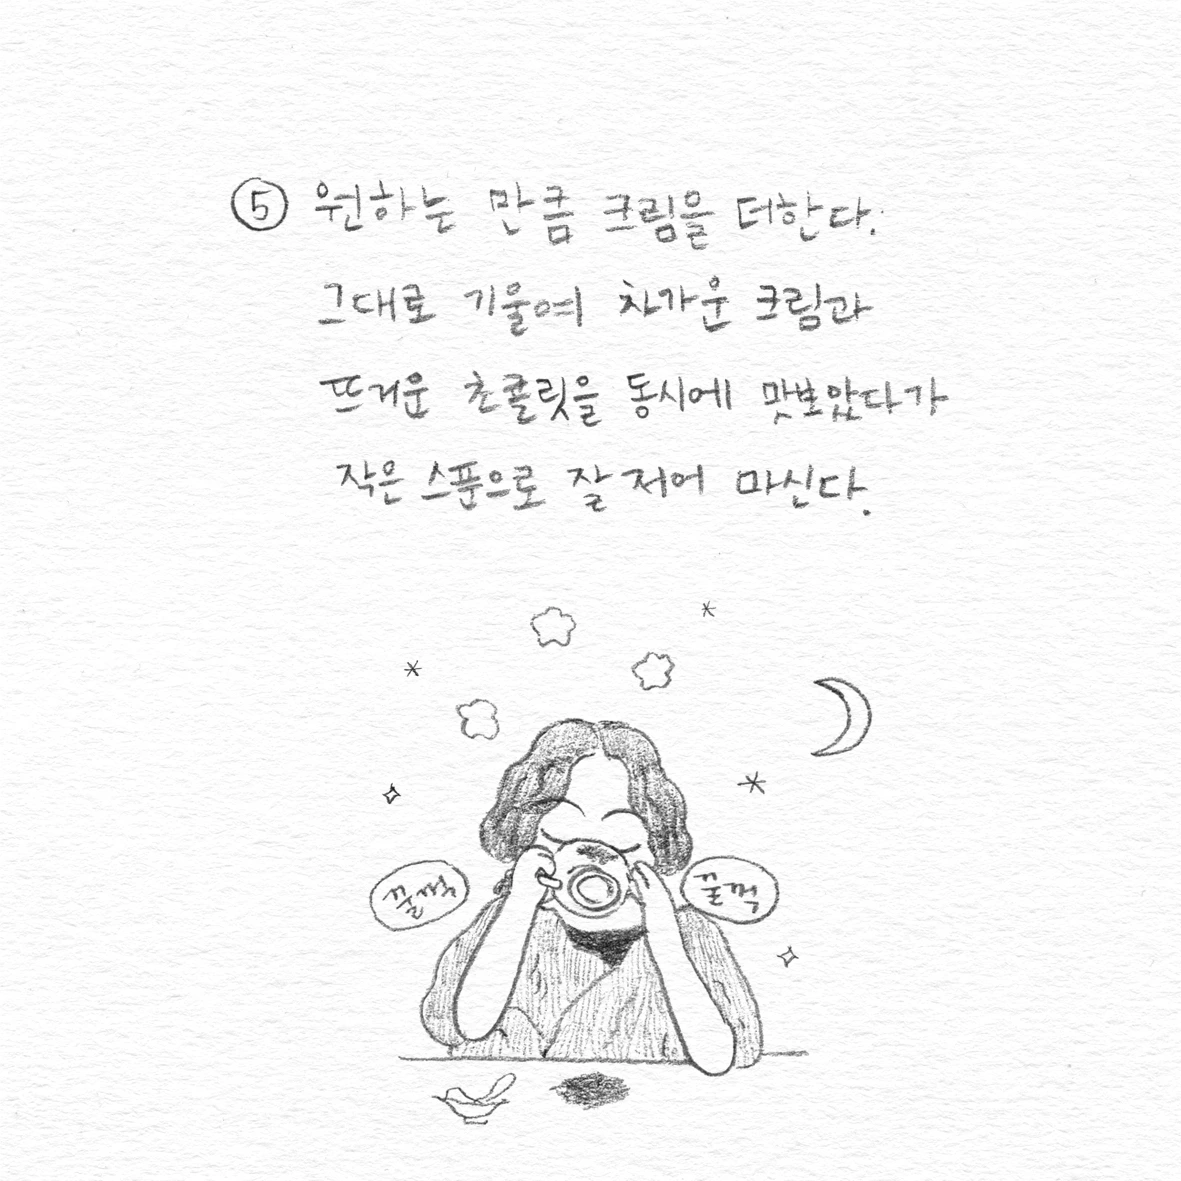 ⑤ 원하는 만큼 크림을 더한다.
그대로 기울여 차가운 크림과
뜨거운 초콜릿을 동시에 맛보았다가
작은 스푼으로 잘 저어 마신다.
꼴깍
꿀꺽